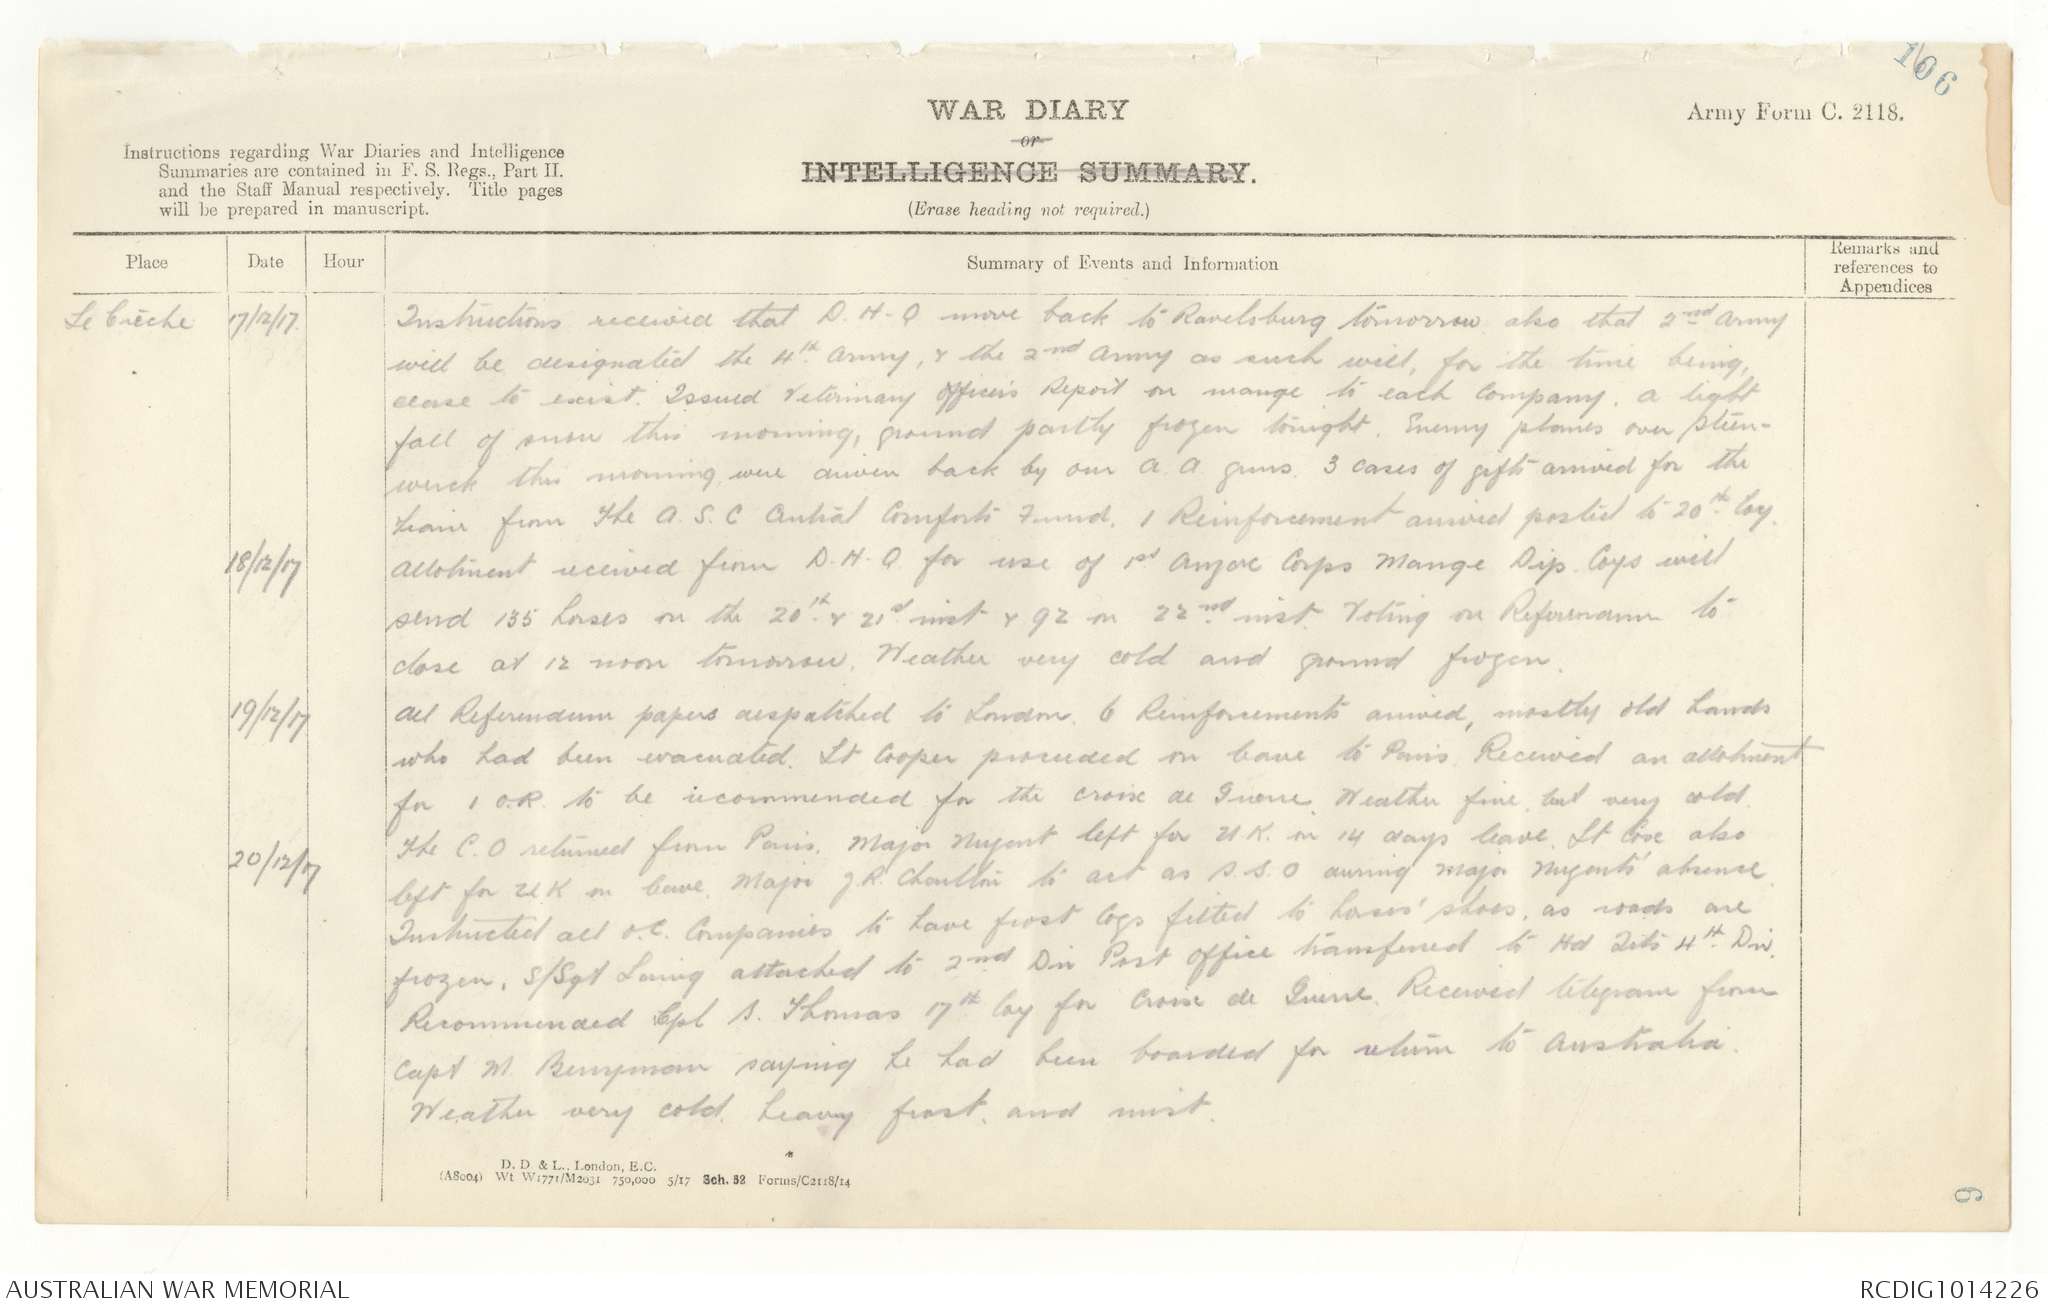 106
WAR DIARY
or
INTELLIGENCE SUMMARY.
(Erase heading not required.)
Army Form C. 2118.
Instructions regarding War Diaries and Intelligence
Summaries are contained in F. S. Regs., Part II.
and the Staff Manual respectively. Title pages
will be prepared in manuscript.
Place
Date
Hour
Summary of Events and Information
Remarks and
references to
Appendices
Le Creche
17/12/17.
Instructions received that D.H.Q move back to Ravelsburg tomorrow also that 2nd Army
will be designated the 4th Army, & the 2nd Army as such will, for the time being,
cease to exist. Issued Veterinary Officers Report on mange to each Company. A light
fall of snow this morning, ground partly frozen tonight. Enemy planes over Steen-
werck this morning, were driven back by our A.A. guns. 3 cases of gifts arrived for the
train from the A.S.C Central Comforts Fund. 1 Reinforcement arrived posted to 20th Coy.
18/12/17
Allotment received from D.H.Q for use of 1st Anzac Corps Mange Dip. Coys will
send 135 horses on the 20th & 21st inst & 92 on 22nd inst. Voting on Referendum to
close at 12 noon tomorrow. Weather very cold and ground frozen.
19/12/17
All Referendum papers despatched to London. 6 Reinforcements arrived, mostly old hands
who had been evacuated. Lt Cooper proceeded on leave to Paris. Received an allotment
for 1 O.R. to be recommended for the Croix de Guerre. Weather fine but very cold.
20/12/17
The C.O returned from Paris. Major Nugent left for U.K. on 14 days leave. Lt Cox also
left for U.K on leave. Major J.R. Charlton to act as S.S.O during Major Nugents' absence.
Instructed all O.C. Companies to have frost cogs fitted to horses' shoes, as roads are
frozen. S/Sgt Laing attached to 2nd Div Post Office transferred to Hd Qrs 4th Div.
Recommended Cpl S. Thomas 17th Coy for Croix de Guerre. Received telegram from
Capt M Berryman saying he had been boarded for return to Australia.
Weather very cold. heavy frost. and mist.
D. D. & L., London, E.C.
(A8004) Wt W1771/M2031 750,000 5/17 Sch. 52 Forms/C2118/14
9
AUSTRALIAN WAR MEMORIAL
RCDIG1014226